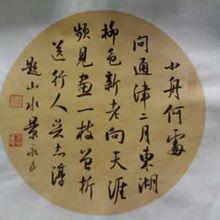 小舟何處
問通津二月東湖
柳色新老向天涯
頻見畫一枝曾折
送行人吳志淳
題山水景